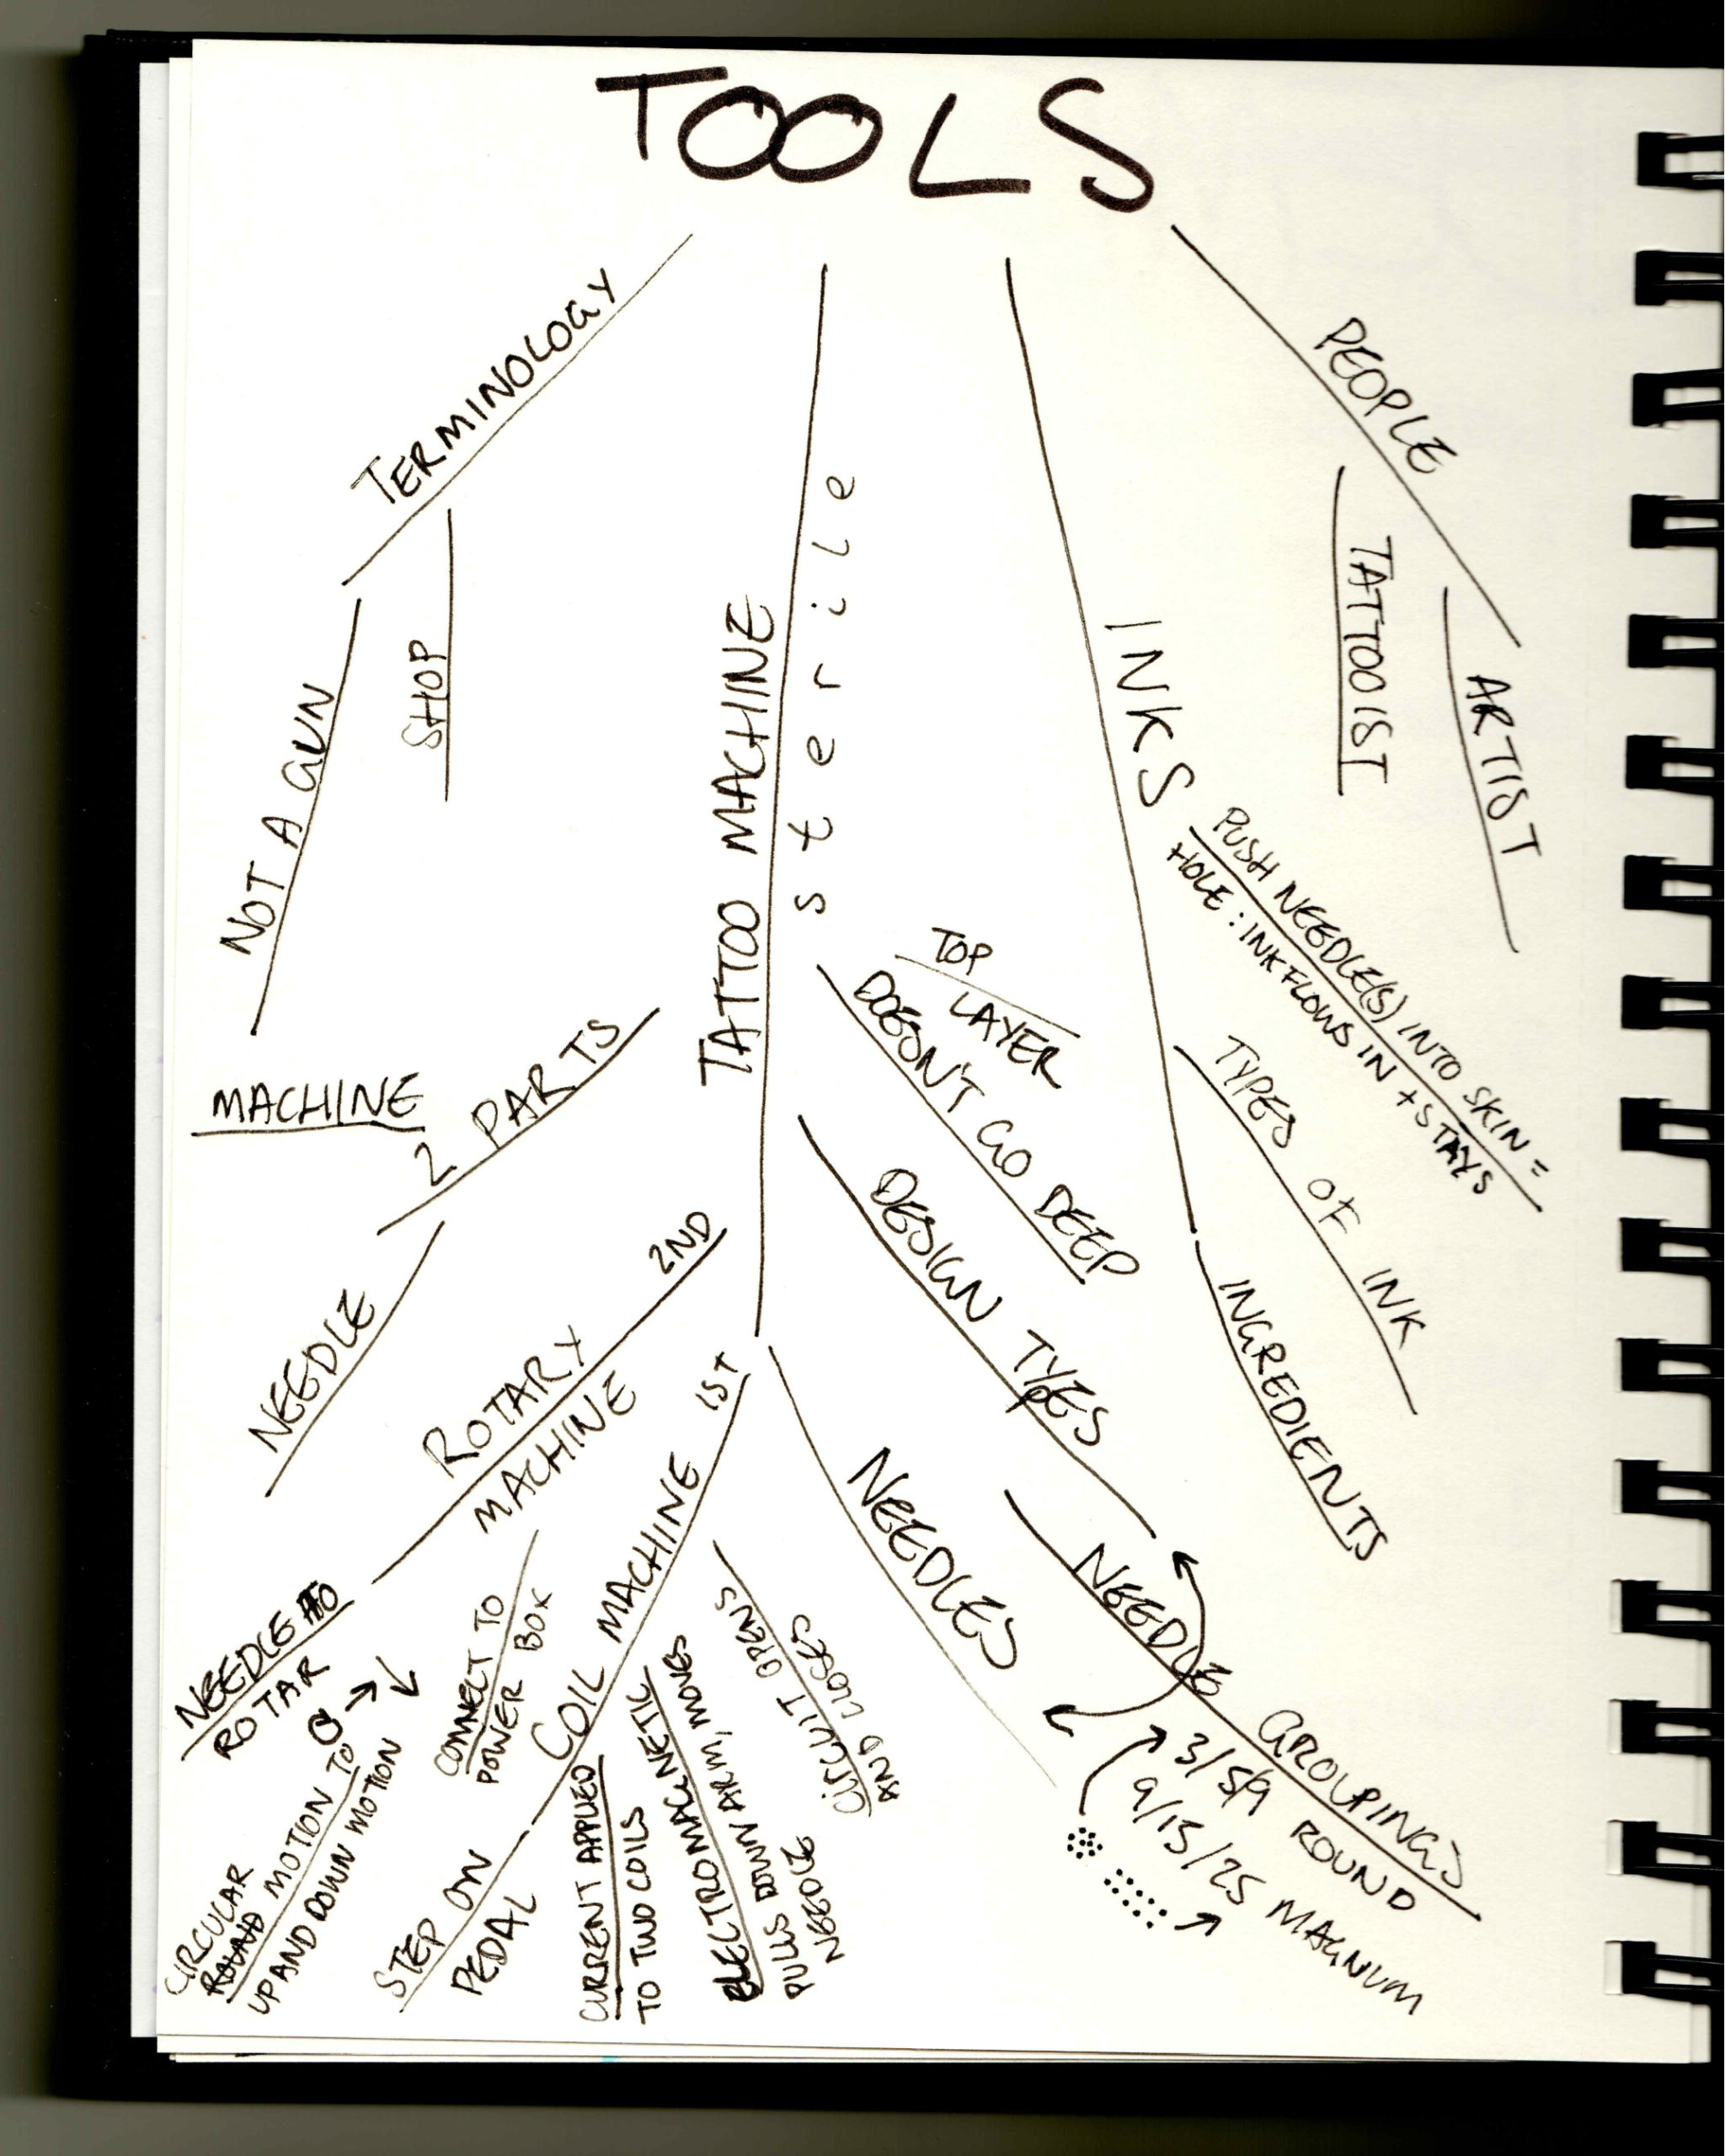 TOOLS
TERMINOLOGY
NOT A GUN
SHOP
TATTOO MACHINE
sterile
MACHINE
2 PARTS
NEEDLE
2ND
ROTARY
MACHINE
NEEDLE TO
ROTAR
CIRCULAR
ROUND MOTION TO
UP AND DOWN MOTION
CONNECT TO
POWER BOX
1ST
COIL MACHINE
STEP ON
PEDAL
CURRENT APPLIED
TO TWO COILS
ELECTROMAGNETIC
PULLS DOWN ARM, MOVES
NEEDLE
CIRCUIT OPENS
AND CLOSES
TOP
LAYER
DOESN'T GO DEEP
DESIGN TYPES
NEEDLES
NEEDLE GROUPINGS
3/5/9 ROUND
9/15/25 MAGNUM
INKS
PUSH NEEDLE(S) INTO SKIN =
HOLE : INK FLOWS IN + STAYS
TYPES OF INK
INGREDIENTS
PEOPLE
TATTOOIST
ARTIST